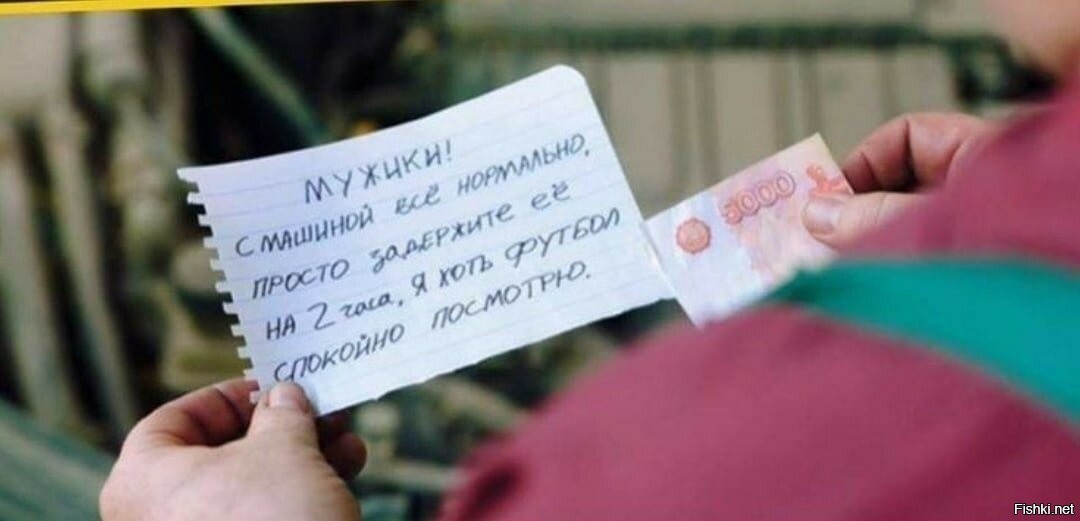 МУЖИКИ!
С МАШИНОЙ ВСЁ НОРМАЛЬНО,
ПРОСТО ЗАДЕРЖИТЕ ЕЁ
НА 2 часа, Я ХОТЬ ФУТБОЛ
СПОКОЙНО ПОСМОТРЮ.
5000
Fishki.net